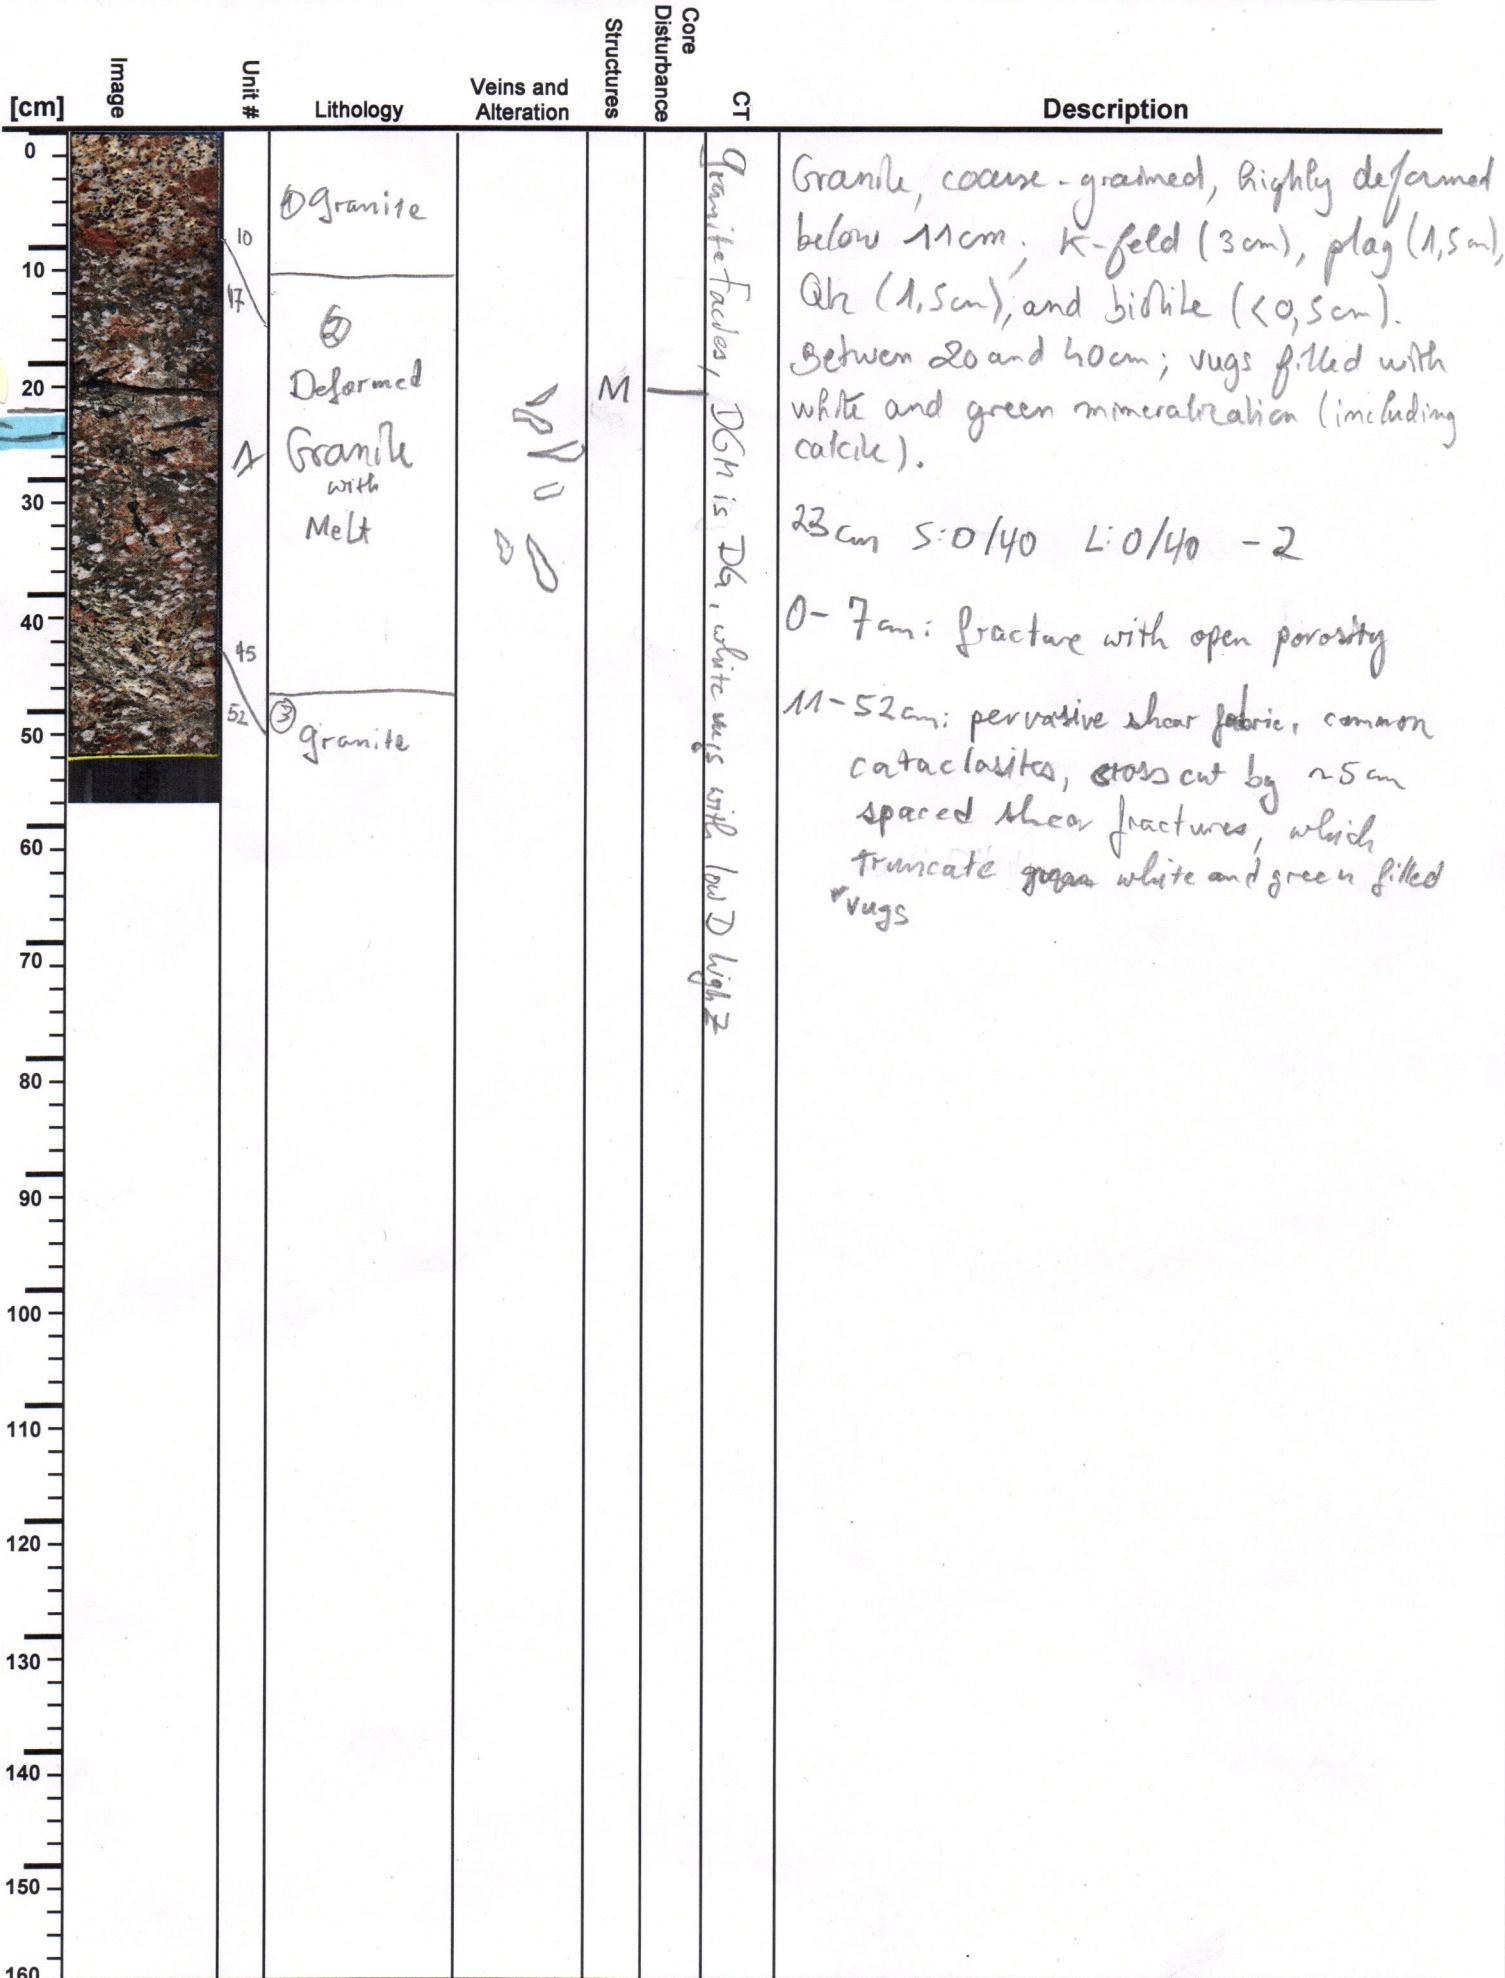 [cm]
Image
Unit #
Lithology
Veins and
Alteration
Structures
Core
Disturbance
CT
Description
0
10
20
30
40
50
60
70
80
90
100
110
120
130
140
150
160
10
17
1
45
52
① Granite
②
Deformed
Granite
with
Melt
③
granite
M
granite facies, DGM is DG, white vugs with low D high Z
Granite, coarse-grained, highly deformed
below 11cm; K-feld (3cm), plag (1,5cm),
Qtz (1,5cm), and biotite (<0,5cm).
Betwen 20 and 40cm; vugs filled with
white and green mineralization (including
calcite).
23cm S:0/40 L:0/40 - 2
0- 7cm: fracture with open porosity
11-52cm: pervasive shear fabric, common
cataclasites, cross cut by ~5cm
spaced shear fractures, which
truncate white and green filled
vugs